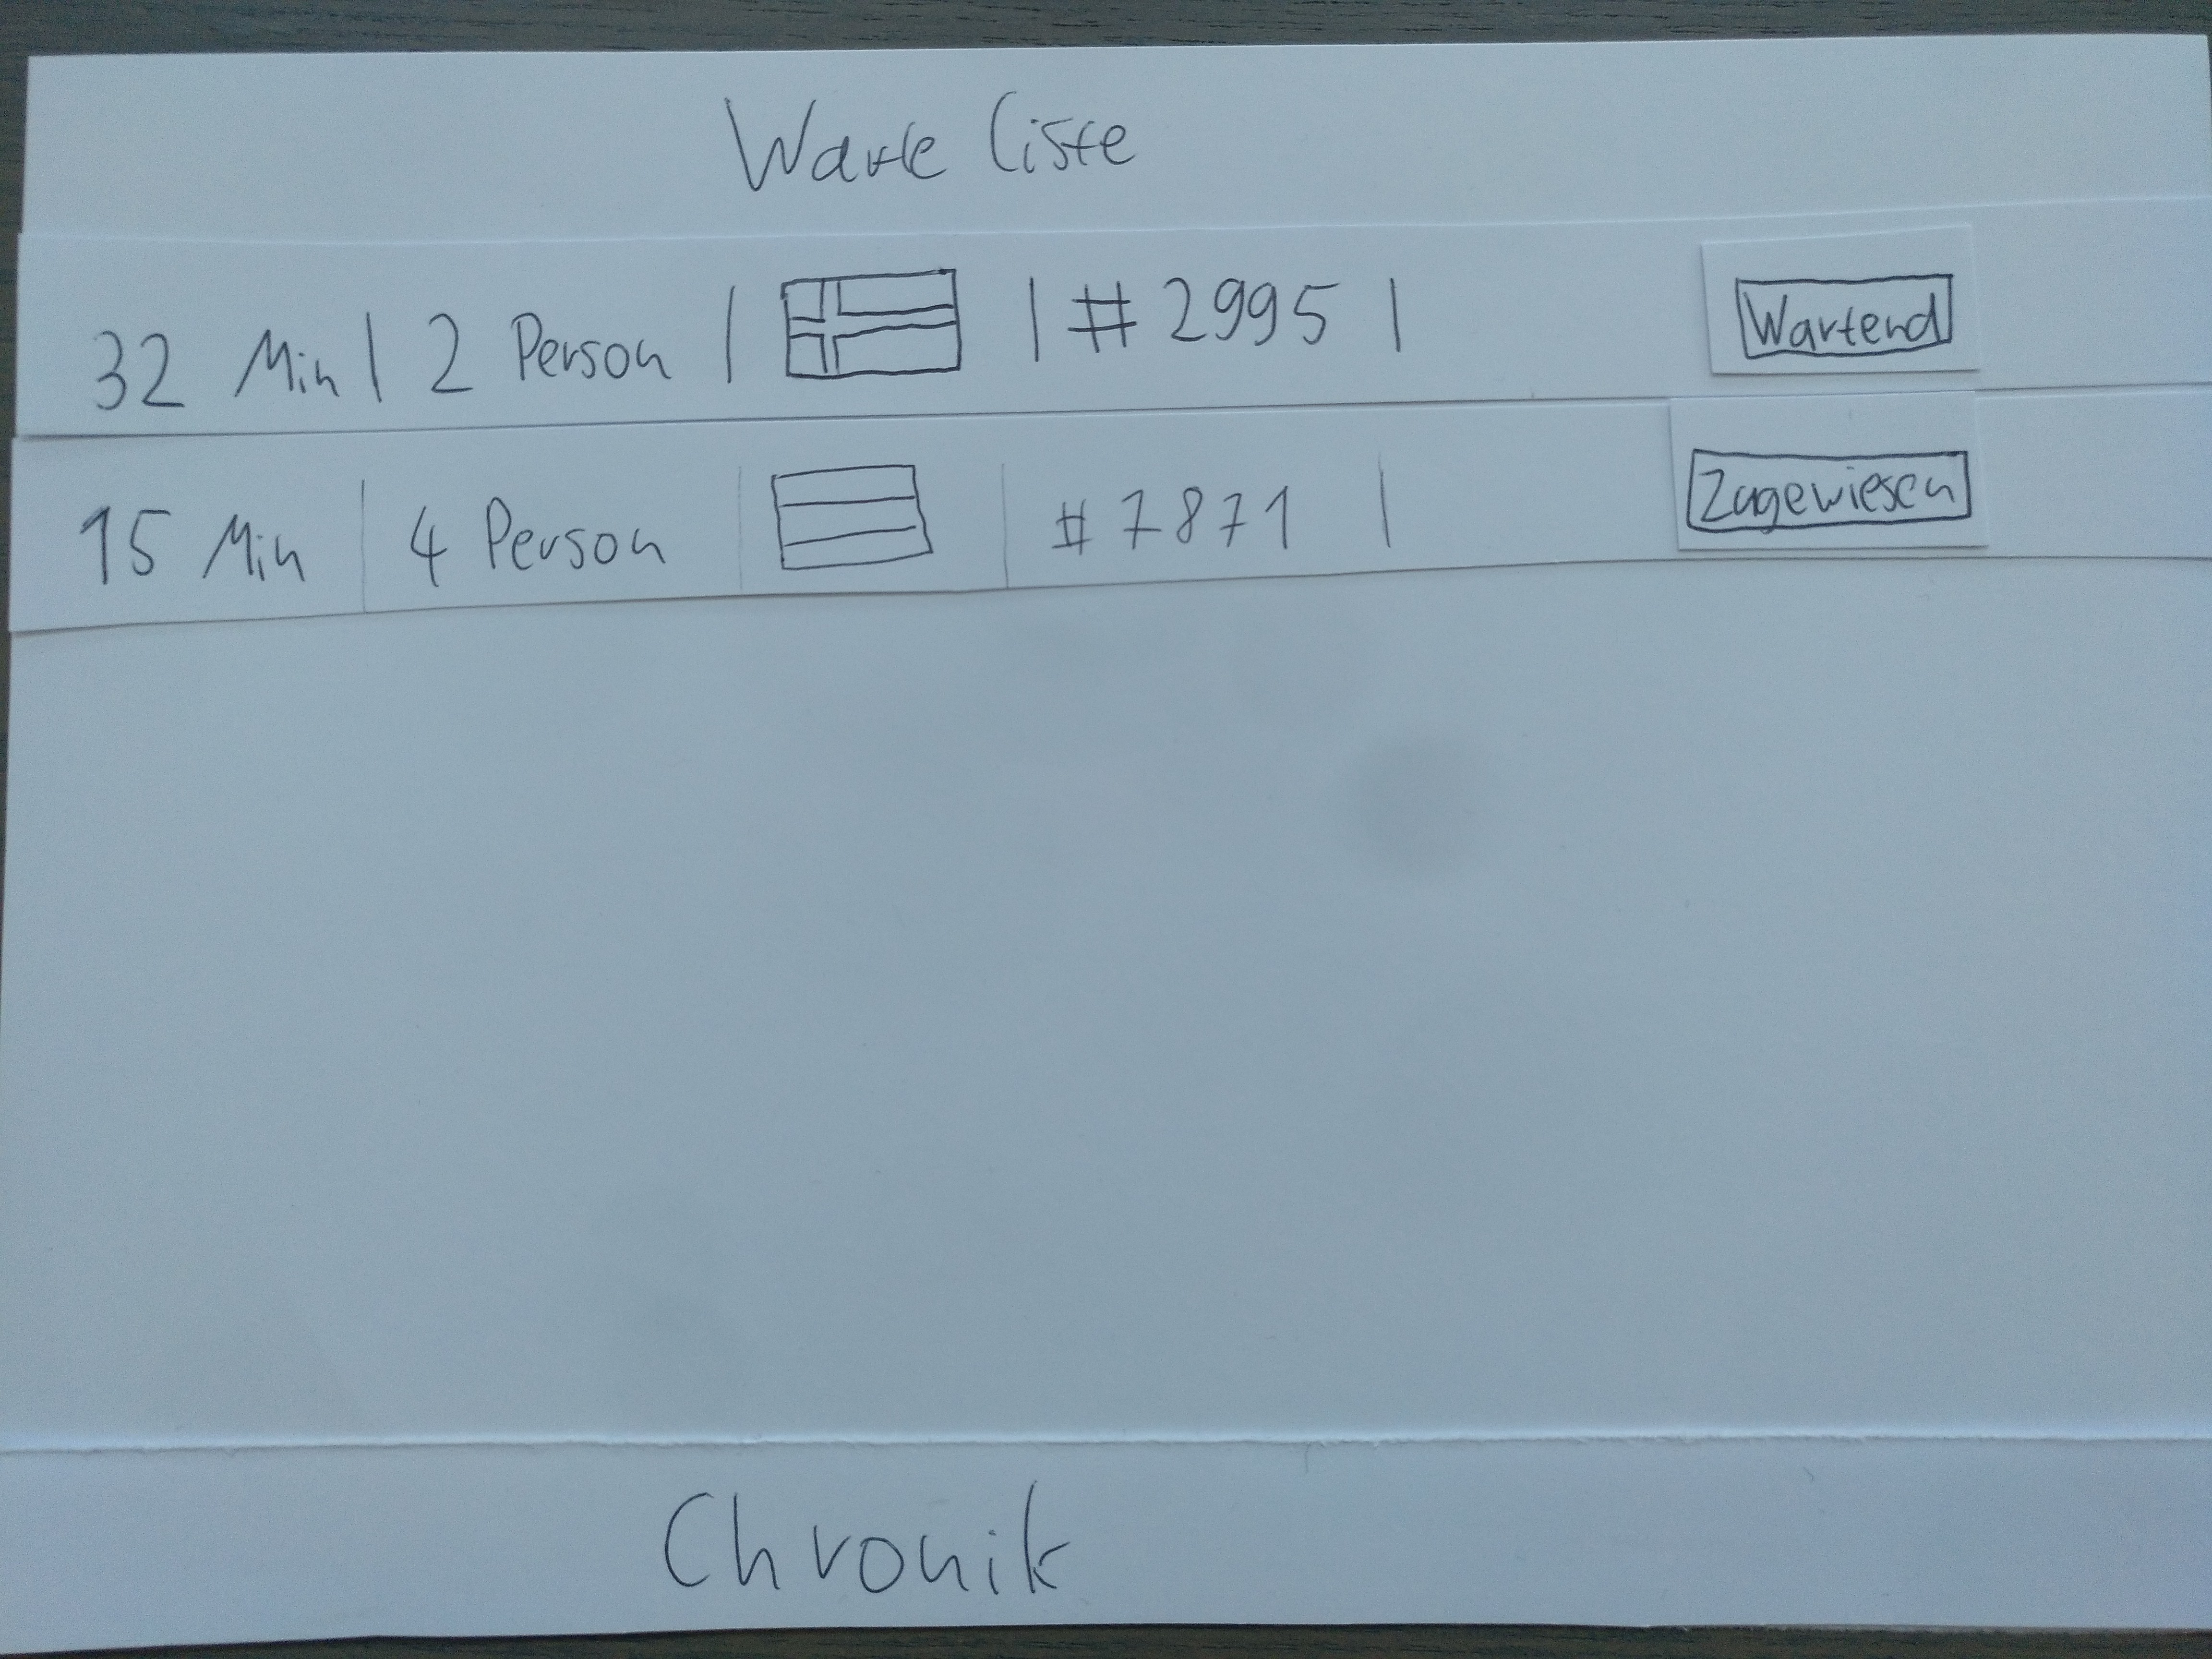 Warte liste
32 Min | 2 Person | | # 2995 | Wartend
15 Min | 4 Person | | # 7871 | Zugewiesen
Chronik